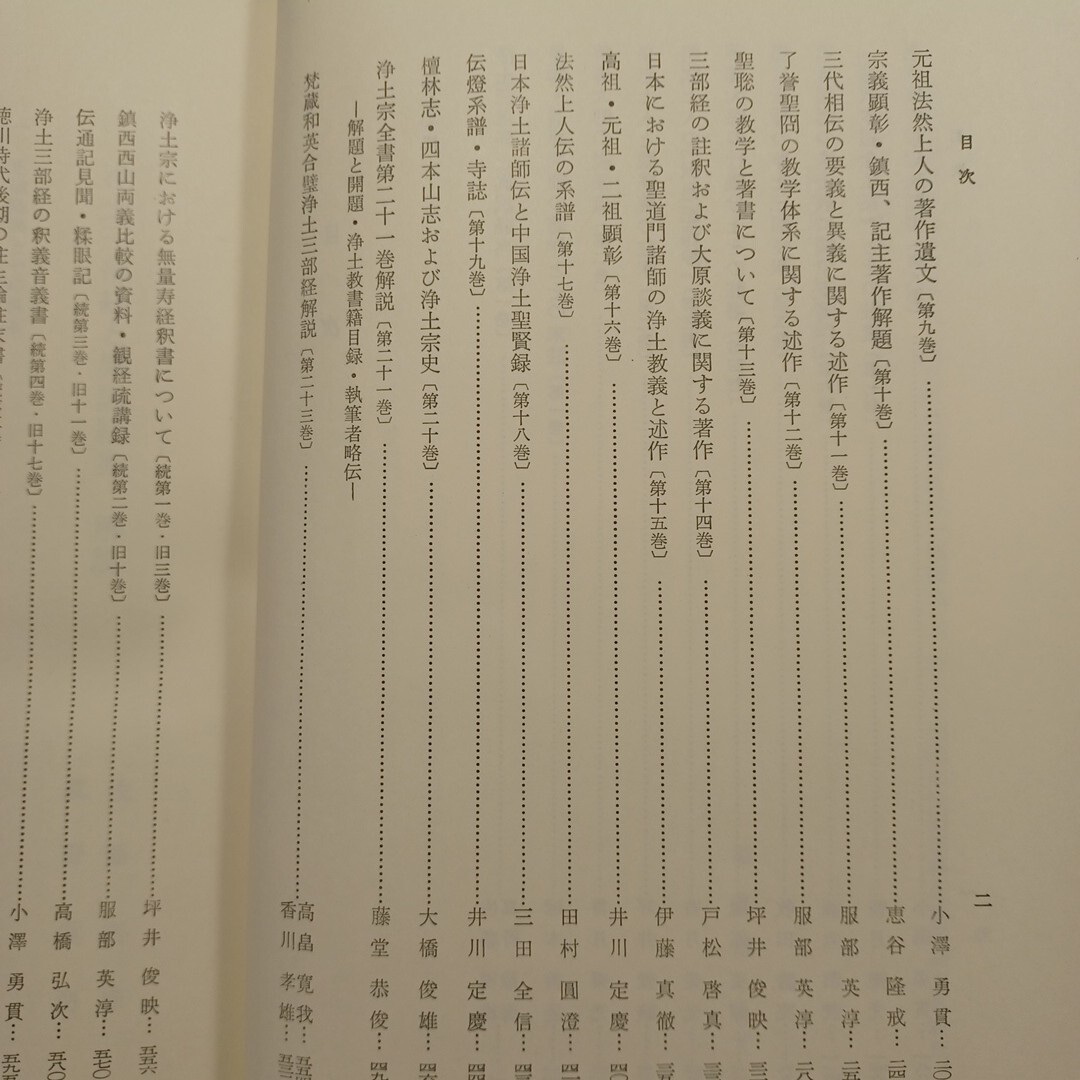 目次
二
元祖法然上人の著作遺文〔第九巻〕……小澤勇貫…二〇
宗義顕彰・鎮西、記主著作解題〔第十巻〕……恵谷隆戒…二四
三代相伝の要義と異義に関する述作〔第十一巻〕……服部英淳…二五
了誉聖冏の教学体系に関する述作〔第十二巻〕……服部英淳…二八
聖聡の教学と著書について〔第十三巻〕……坪井俊映…三二
三部経の註釈および大原談義に関する著作〔第十四巻〕……戸松啓真…三三
日本における聖道門諸師の浄土教義と述作〔第十五巻〕……伊藤真徹…三五
高祖・元祖・二祖顕彰〔第十六巻〕……井川定慶…四〇
法然上人伝の系譜〔第十七巻〕……田村圓澄…四一
日本浄土諸師伝と中国浄土聖賢録〔第十八巻〕……三田全信…四三
伝燈系譜・寺誌〔第十九巻〕……井川定慶…四四
檀林志・四本山志および浄土宗史〔第二十巻〕……大橋俊雄…四六
浄土宗全書第二十一巻解説〔第二十一巻〕……藤堂恭俊…四九
―解題と開題・浄土教書籍目録・執筆者略伝―
梵蔵和英合璧浄土三部経解説〔第二十三巻〕……高畠寛我…五五四
香川孝雄…五三
浄土宗における無量寿経釈書について〔続第一巻・旧三巻〕……坪井俊映…五五六
鎮西西山両義比較の資料・観経疏講録〔続第二巻・旧十巻〕……服部英淳…五七〇
伝通記見聞・糅眼記〔続第三巻・旧十一巻〕……高橋弘次…五八〇
浄土三部経の釈義音義書〔続第四巻・旧十七巻〕……小澤勇貫…五九五
徳川時代後期の往生論註末書